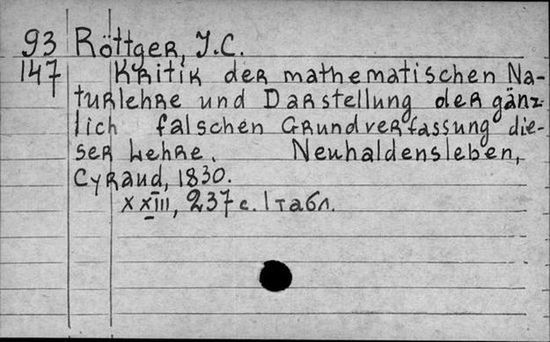 93 Röttger, J.C.
147 Kritik der mathematischen Na-
turlehre und Darstellung der gänz-
lich falschen Grundverfassung die-
ser Lehre. Neuhaldensleben,
Cyraud, 1830.
XXIII, 237 с. 1 табл.